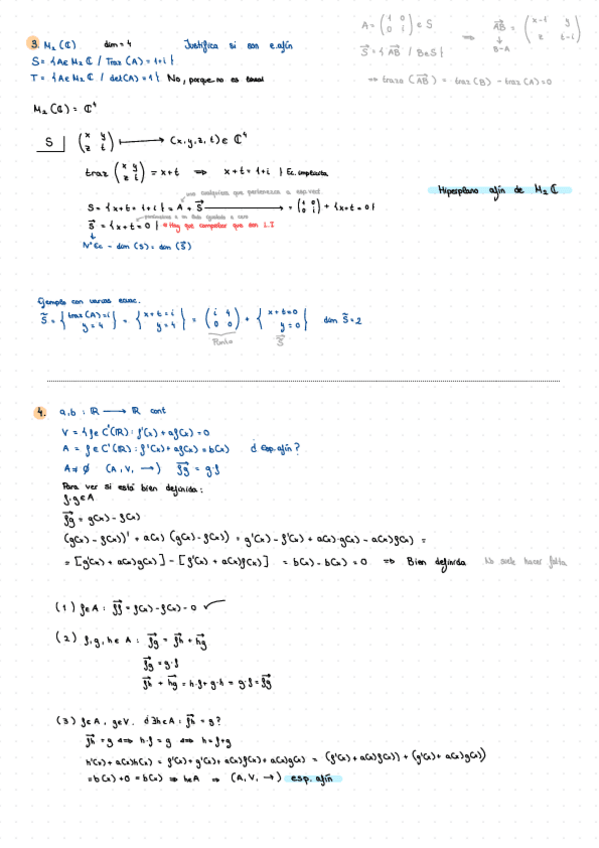 3. M₂(ℂ) dim = 4 Justifica si son e. afín
S = {A ∈ M₂ ℂ / Traz (A) = 1+i}
T = {A ∈ M₂ ℂ / det(A) = 1} No, porque no es lineal
A = (1 0; 0 i) ∈ S ⇒ AB⃗ = (x-1 y; z t-i)
B-A
S⃗ = {AB⃗ / B∈S}
⇒ traza (AB⃗) = traz (B) - traz (A) = 0
M₂ (ℂ) = ℂ⁴
S | (x y; z t) ⟼ (x, y, z, t) ∈ ℂ⁴
traz (x y; z t) = x+t ⇒ x+t = 1+i } Ec. implícita
Hiperplano afín de M₂ ℂ
cualquiera que pertenezca a esp. vect.
S = {x+t = 1+i} = A + S⃗ → = (1 0; 0 i) + {x+t=0}
S⃗ = {x+t=0} Hay que comprobar que son L.I
NºEc - dim (S) = dim (S⃗)
Ejemplo con varias ecuac.
S̃ = {traz (A) = i; y = 4} = {x+t = i; y = 4} = (i 4; 0 0) + {x+t=0; y=0} dim S̃ = 2
Punto S⃗
4. a, b : ℝ ⟶ ℝ cont
V = {f ∈ C¹(ℝ) : f'(x) + af(x) = 0
A = f ∈ C¹(ℝ) : f'(x) + af(x) = b(x) ¿ esp. afín ?
A ≠ ∅ (A, V, →) fg⃗ = g-f
Para ver si está bien definida:
f, g ∈ A
fg⃗ = g(x) - f(x)
(g(x) - f(x))' + a(x) (g(x) - f(x)) = g'(x) - f'(x) + a(x)·g(x) - a(x)f(x) =
= [g'(x) + a(x)g(x)] - [f'(x) + a(x)f(x)] = b(x) - b(x) = 0 ⇒ Bien definida No suele hacer falta
(1) f ∈ A : ff⃗ = f(x) - f(x) = 0 ✓
(2) f, g, h ∈ A : fg⃗ = fh⃗ + hg⃗
fg⃗ = g-f
fh⃗ + hg⃗ = h-f + g-h = g-f = fg⃗
(3) f ∈ A, g ∈ V. ¿∃h ∈ A : fh⃗ = g?
fh⃗ = g ⟺ h-f = g ⟺ h = f+g
h'(x) + a(x)h(x) = f'(x) + g'(x) + a(x)f(x) + a(x)g(x) = (f'(x) + a(x)f(x)) + (g'(x) + a(x)g(x))
= b(x) + 0 = b(x) ⇒ h ∈ A ⇒ (A, V, →) esp. afín